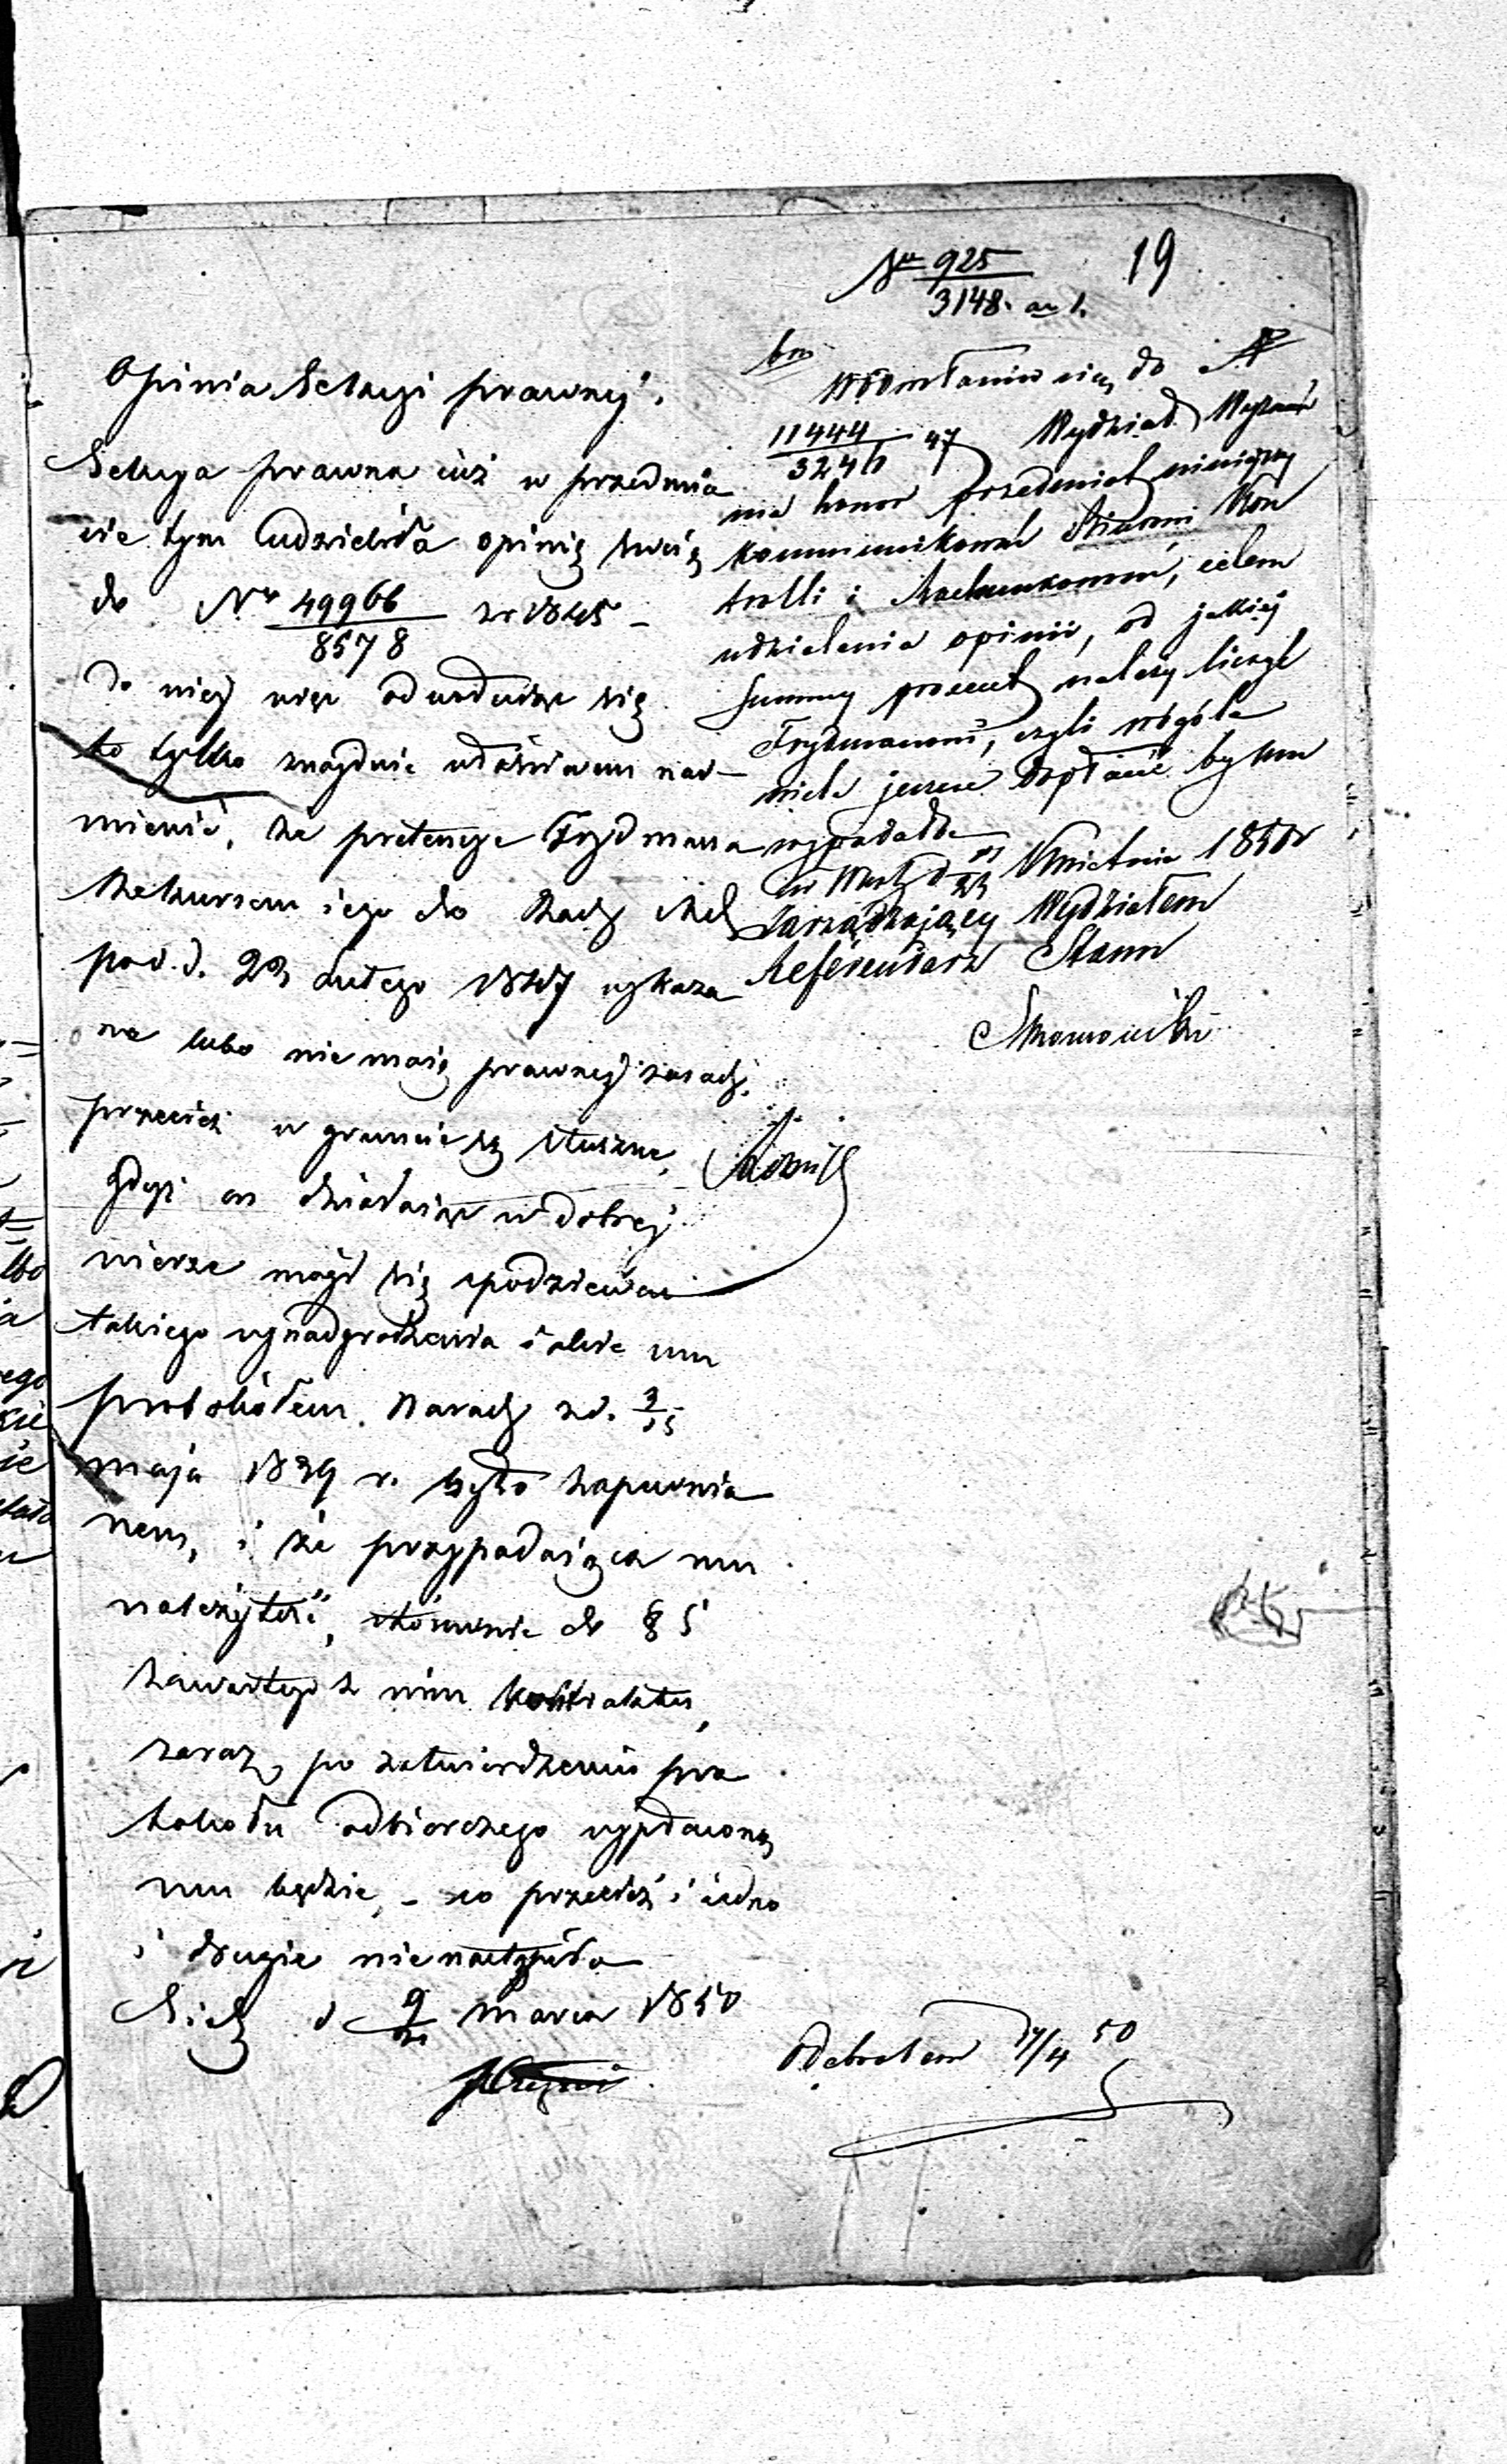 19
Nr 925
3148. ax 1.
Opinia Sekcyi prawnéj.
Sekcya prawna iuż w przedmio
cie tym udzieliła opinię swoią
do Nr 49966 zr 1845 –
8578
do niéj więc odwołuiąc się
to tylko znajduie właściwem nad–
mienić, że pretensye Frydmana
rekursem iego do Rady
pod d. 23 Lutego 1847 wykaza
ne lubo nie maią prawnéj zasady,
przecież w gruncie są słuszne,
gdyż on działaiąc w dobréj
wierze mógł się spodziewać
takiego wynadgrodzenia iakie mu
protokółem Narady z d. 3/15
maja 1839 r. było zapewnio
nem, i że przypadaiąca mu
należytość, stósownie do § 5
zawartego z nim kontraktu,
zaraz po zatwierdzeniu pro
tokołu odbiorczego wypłaconą
mu będzie, – co przecież i iedno
i drugie nie nastąpiło
d 9/21 Marca 1850
W odwołaniu się do Nr
11444 47 Wydział Wyzna
3246
nia honor przedmiot niniejszy
kommunikować Sekcyi Kon
trolli i Rachunkowéj, celem
udzielenia opinii, od jakiéj
summy procent należy liczyć
Frydmanowi, czyli wogóle
wiele jeszcze dopłacić by mu
wypadało
w Warsz d Kwietnia 1850 r
Zarządzający Wydziałem
Referendarz Stanu
Odebrałem 17/4 50